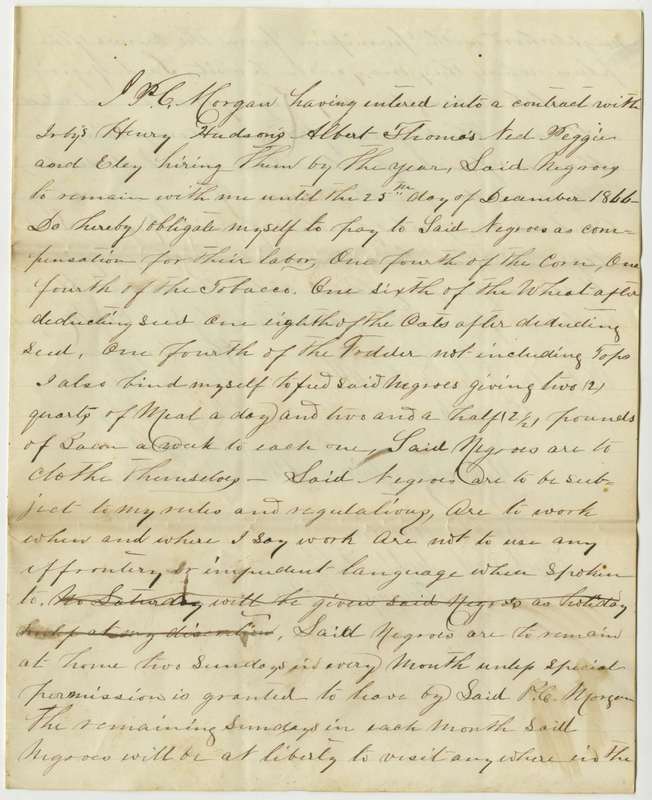 I P.C. Morgan having entered into a contract with
Irby's Henry Hudsons Albert Thomas Ned Peggie
and Eley hiring them by the year, Said Negroes
to remain with me until the 25th day of December 1866
Do hereby obligate myself to pay to Said Negroes as com-
pensation for their labor, One fourth of the Corn, One
fourth of the Tobacco. One sixth of the Wheat after
deducting seed One eighth of the Oats after deducting
seed, One fourth of the Fodder not including Tops
I also bind myself to feed said Negroes giving two (2)
quarts of Meal a day and two and a half (2 1/2) pounds
of Bacon a week to each one, Said Negroes are to
clothe themselves - Said Negroes are to be sub-
ject to my rules and regulations, Are to work
when and where I say work Are not to use any
effrontery or impudent language when spoken
to, No Saturday will be given said Negroes as holiday
unless at my discretion, Said Negroes are to remain
at home two Sundays in every Month unless special
permission is granted to leave by Said P.C. Morgan
The remaining Sundays in each Month Said
Negroes will be at liberty to visit anywhere in the